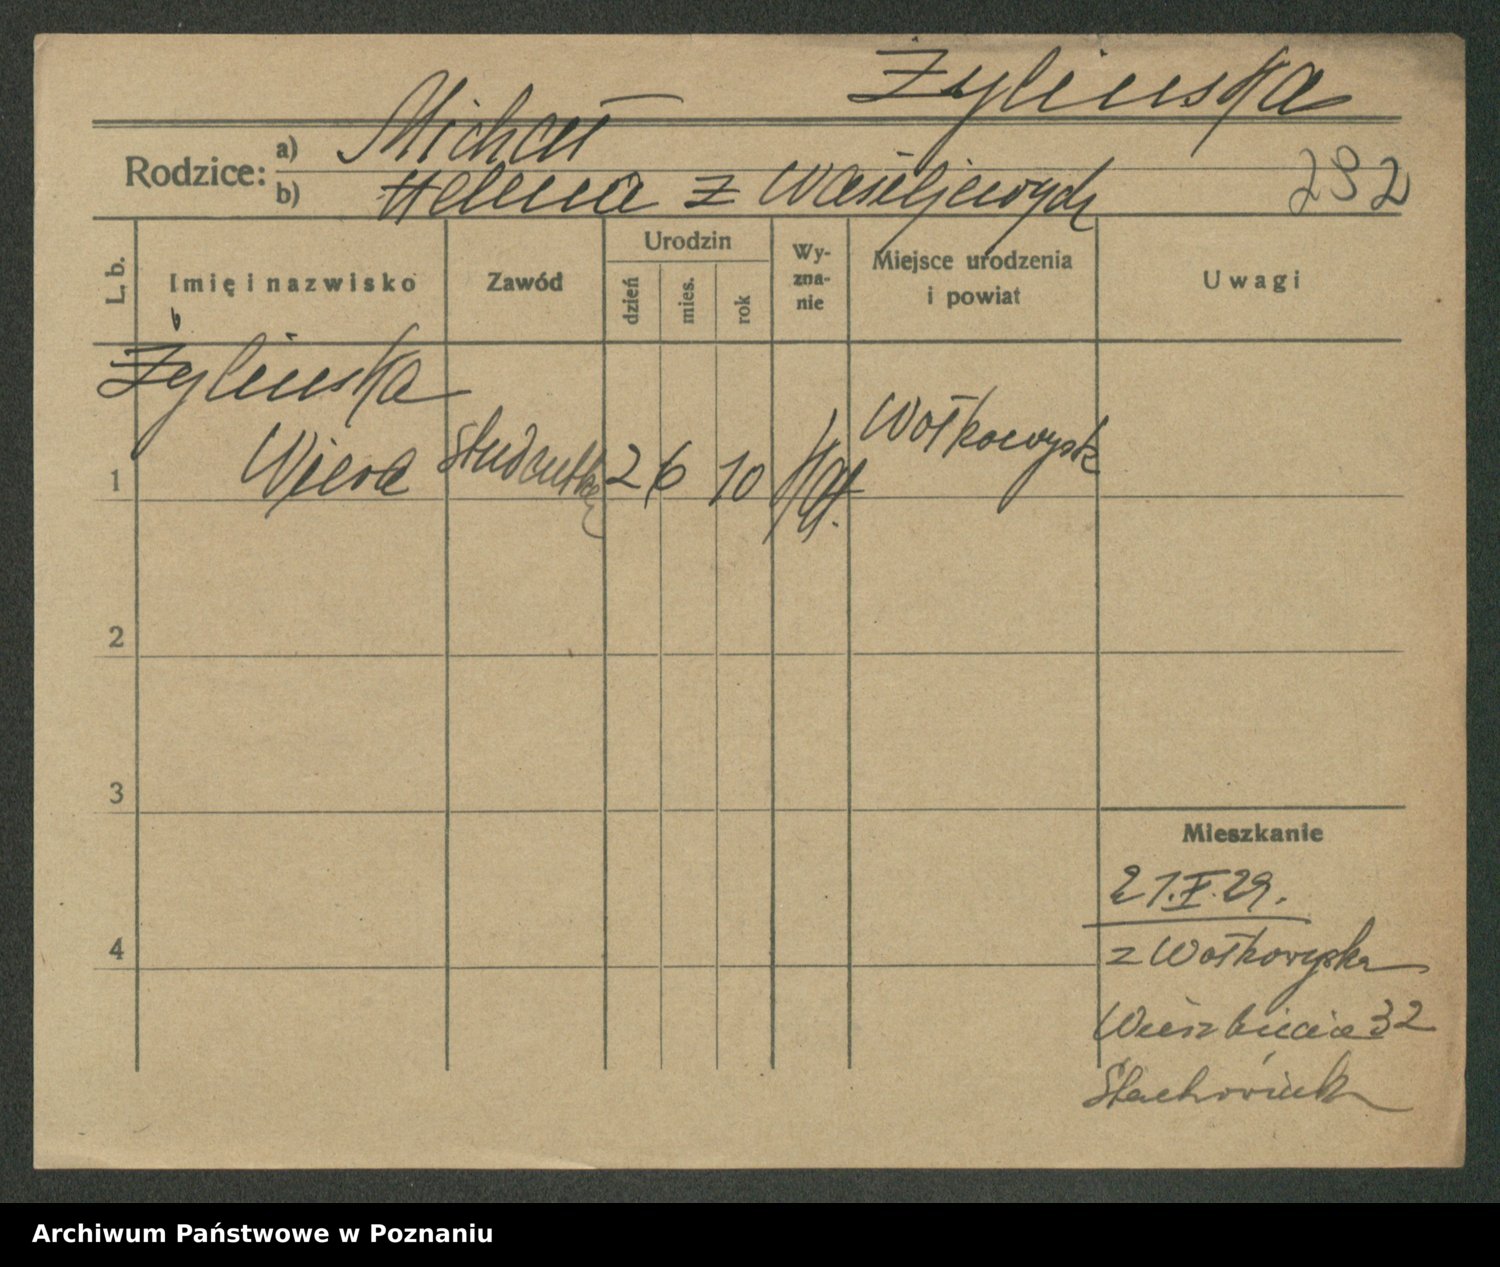 Żylinska
Rodzice: a) Michał
b) Helena z Wasiljewych
292
L. b.
Imię i nazwisko
Zawód
Urodzin
dzień
mies.
rok
Wy-
zna-
nie
Miejsce urodzenia
i powiat
Uwagi
Żylinska
1 Wiera studentka 2 6 10 Wołkowysk
2
3
4
Mieszkanie
21.X.29.
z Wołkowyska
Wierzbięcice 32
Stachowiak
Archiwum Państwowe w Poznaniu